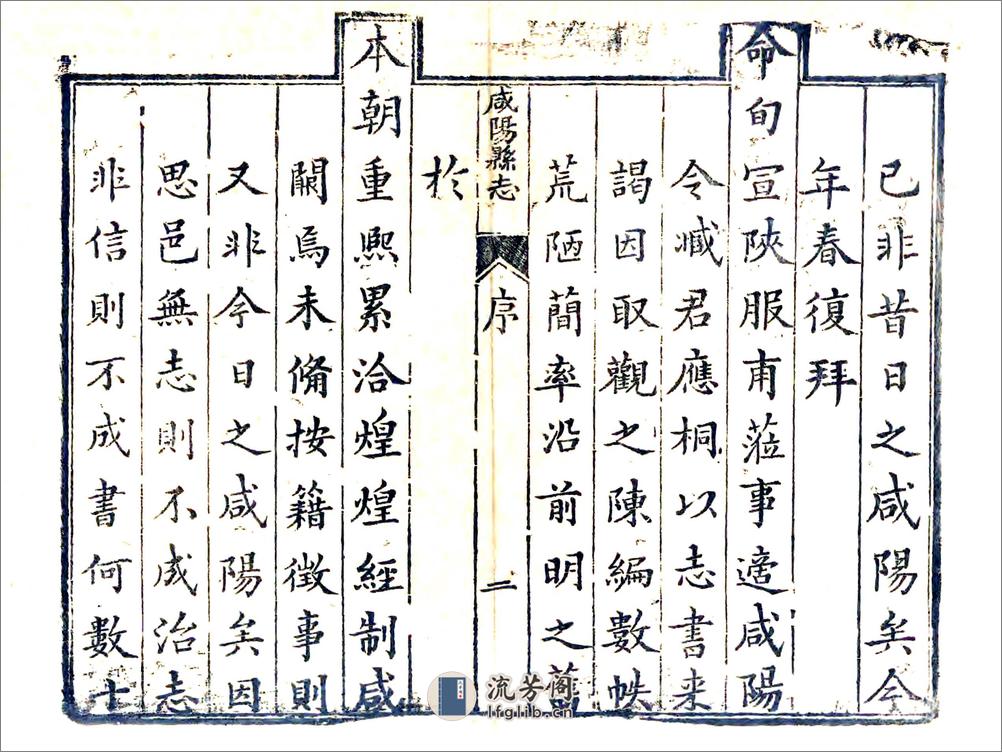 已非昔日之咸陽矣今
年春復拜
命旬宣陝服甫蒞事適咸陽
令臧君應桐以志書来
謁因取觀之陳編數帙
荒陋簡率沿前明之舊
咸陽縣志
序
二
於
本朝重熙累洽煌煌經制咸
闕焉未備按籍徴事則
又非今日之咸陽矣因
思邑無志則不成治志
非信則不成書何數十
流芳阁
lfglib.cn